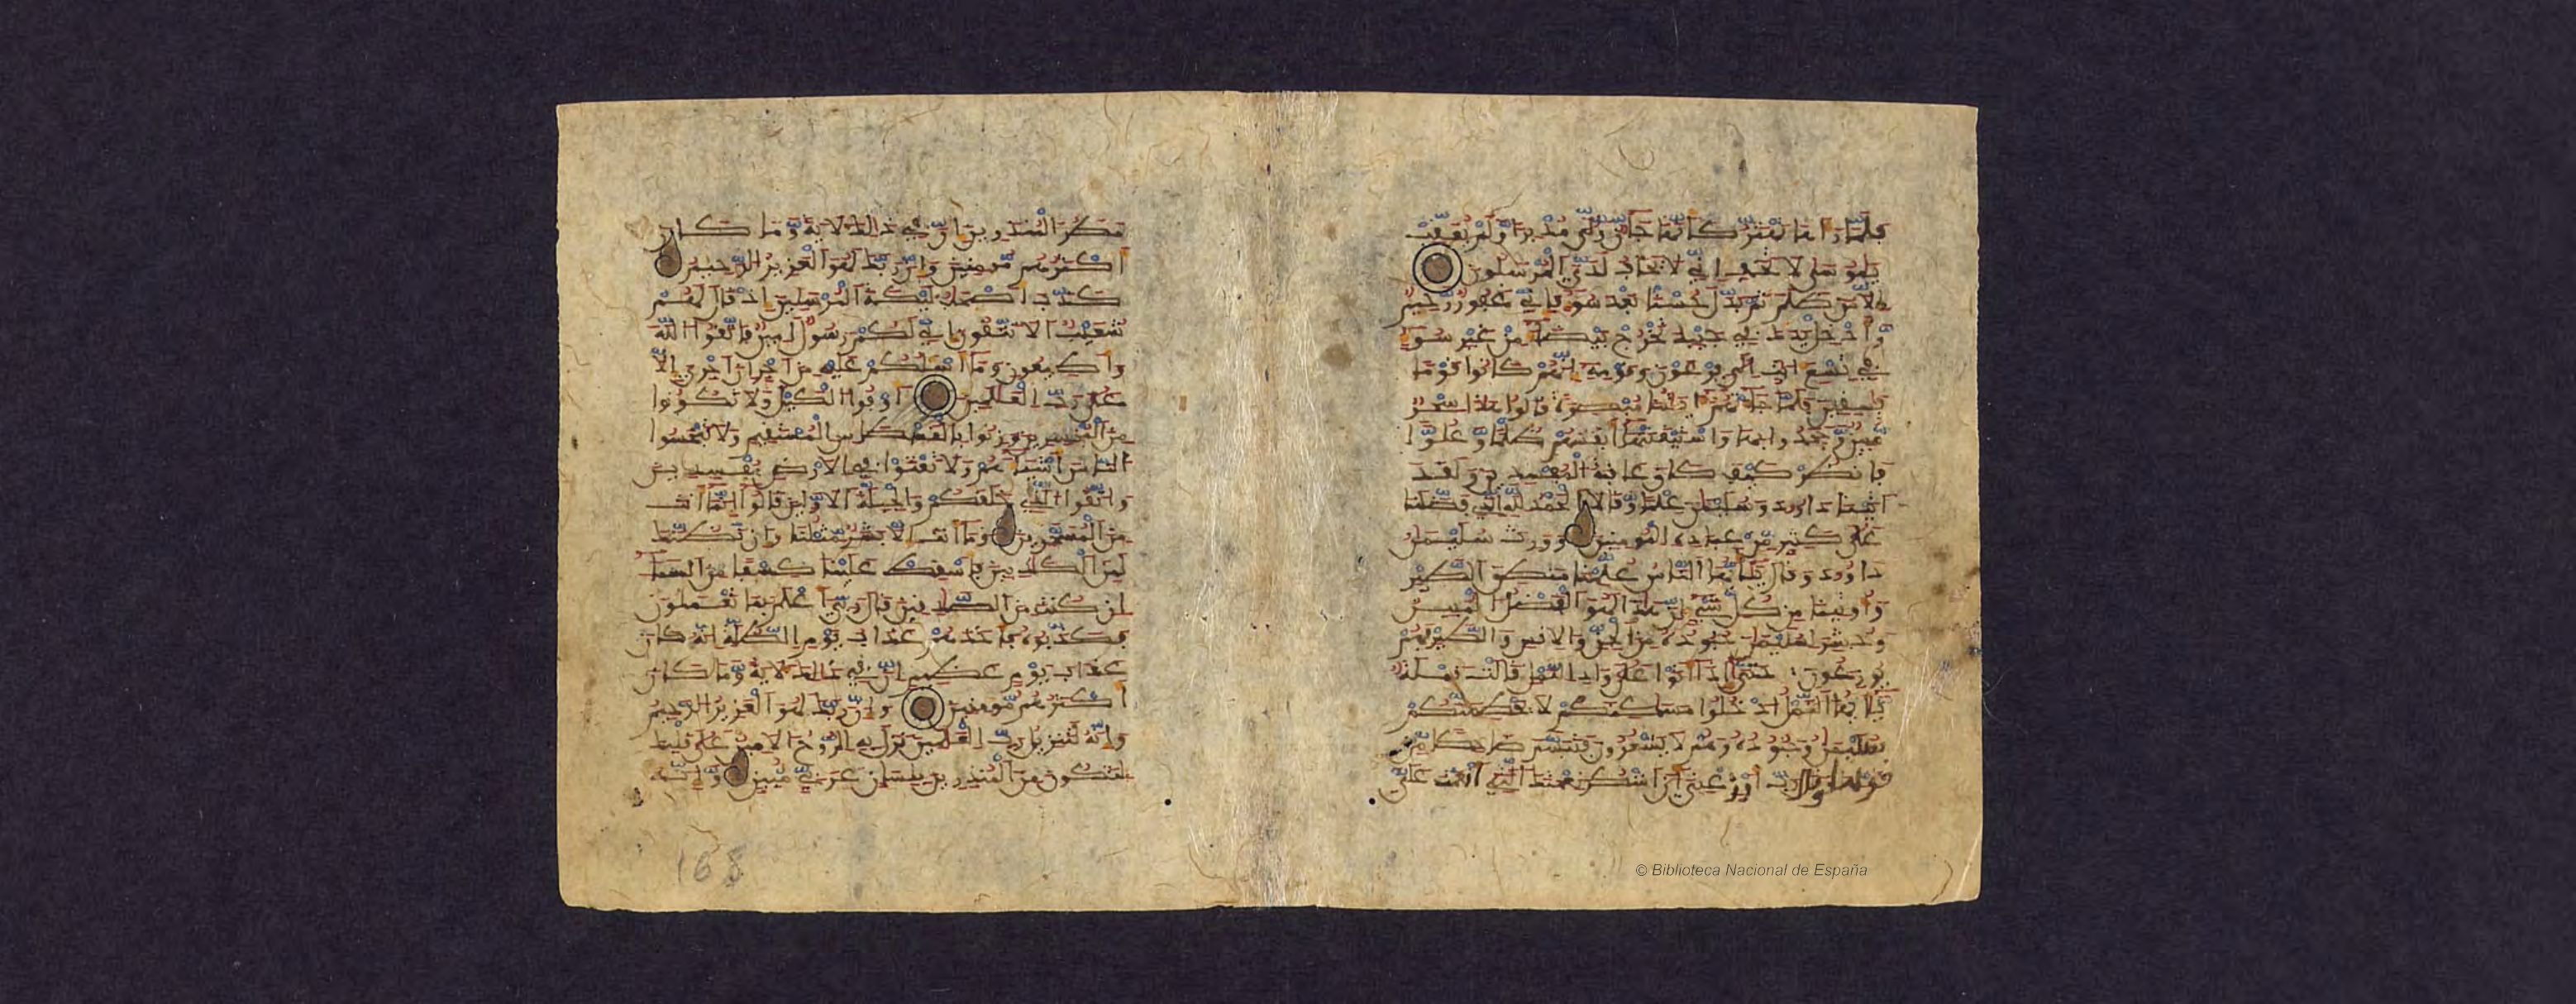 فلما راها تهتز كانها جان ولى مدبرا ولم يعقب
يموسى لا تخف اني لا يخاف لدي المرسلون
الا من ظلم ثم بدل حسنا بعد سوء فاني غفور رحيم
وادخل يدك في جيبك تخرج بيضاء من غير سوء
في تسع ايت الى فرعون وقومه انهم كانوا قوما
فسقين فلما جاءتهم ايتنا مبصرة قالوا هذا سحر
مبين وجحدوا بها واستيقنتها انفسهم ظلما وعلوا
فانظر كيف كان عقبة المفسدين ولقد
اتينا داوود وسليمن علما وقالا الحمد لله الذي فضلنا
على كثير من عباده المومنين وورث سليمن
داوود وقال يايها الناس علمنا منطق الطير
واوتينا من كل شيء ان هذا لهو الفضل المبين
وحشر لسليمن جنوده من الجن والانس والطير فهم
يوزعون حتى اذا اتوا على واد النمل قالت نملة
يايها النمل ادخلوا مسكنكم لا يحطمنكم
سليمن وجنوده وهم لا يشعرون فتبسم ضاحكا من
قولها وقال رب اوزعني ان اشكر نعمتك التي انعمت علي
مطر المنذرين ان في ذلك لاية وما كان
اكثرهم مومنين وان ربك لهو العزيز الرحيم
كذب اصحب ليكة المرسلين اذ قال لهم
شعيب الا تتقون اني لكم رسول امين فاتقوا الله
واطيعون وما اسلكم عليه من اجر ان اجري الا
على رب العلمين اوفوا الكيل ولا تكونوا
من المخسرين وزنوا بالقسطاس المستقيم ولا تبخسوا
الناس اشياءهم ولا تعثوا في الارض مفسدين
واتقوا الذي خلقكم والجبلة الاولين قالوا انما انت
من المسحرين وما انت الا بشر مثلنا وان نظنك
لمن الكذبين فاسقط علينا كسفا من السماء
ان كنت من الصدقين قال ربي اعلم بما تعملون
فكذبوه فاخذهم عذاب يوم الظلة انه كان
عذاب يوم عظيم ان في ذلك لاية وما كان
اكثرهم مومنين وان ربك لهو العزيز الرحيم
وانه لتنزيل رب العلمين نزل به الروح الامين على قلبك
لتكون من المنذرين بلسان عربي مبين وانه
168
© Biblioteca Nacional de España